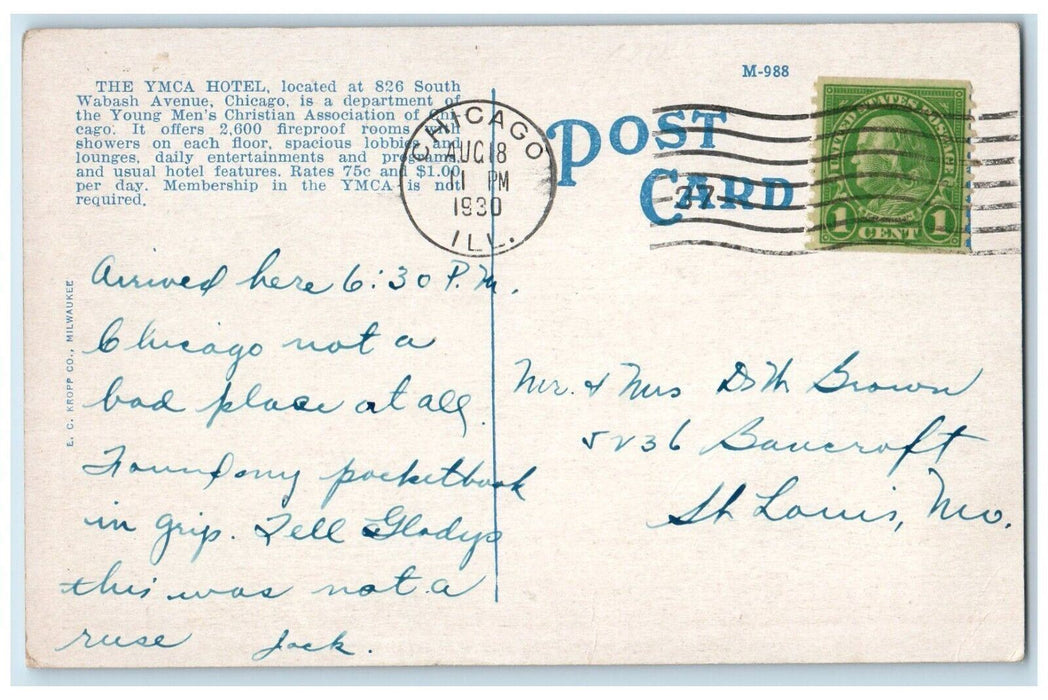 M-988
THE YMCA HOTEL, located at 826 South
Wabash Avenue, Chicago, is a department of
the Young Men's Christian Association of Chi
cago. It offers 2,600 fireproof rooms with
showers on each floor, spacious lobbies and
lounges, daily entertainments and programs
and usual hotel features. Rates 75c and $1.00
per day. Membership in the YMCA is not
required.
CHICAGO
AUG 18
11 PM
1930
ILL.
POST
CARD
37
UNITED STATES POSTAGE
1 CENT 1
E. C. KROPP CO., MILWAUKEE
Arrived here 6:30 P.M.
Chicago not a
bad place at all.
Found my pocketbook
in grip. Tell Gladys
this was not a
ruse Jack.
Mr. & Mrs Brown
5236 Bancroft
St Louis, Mo.